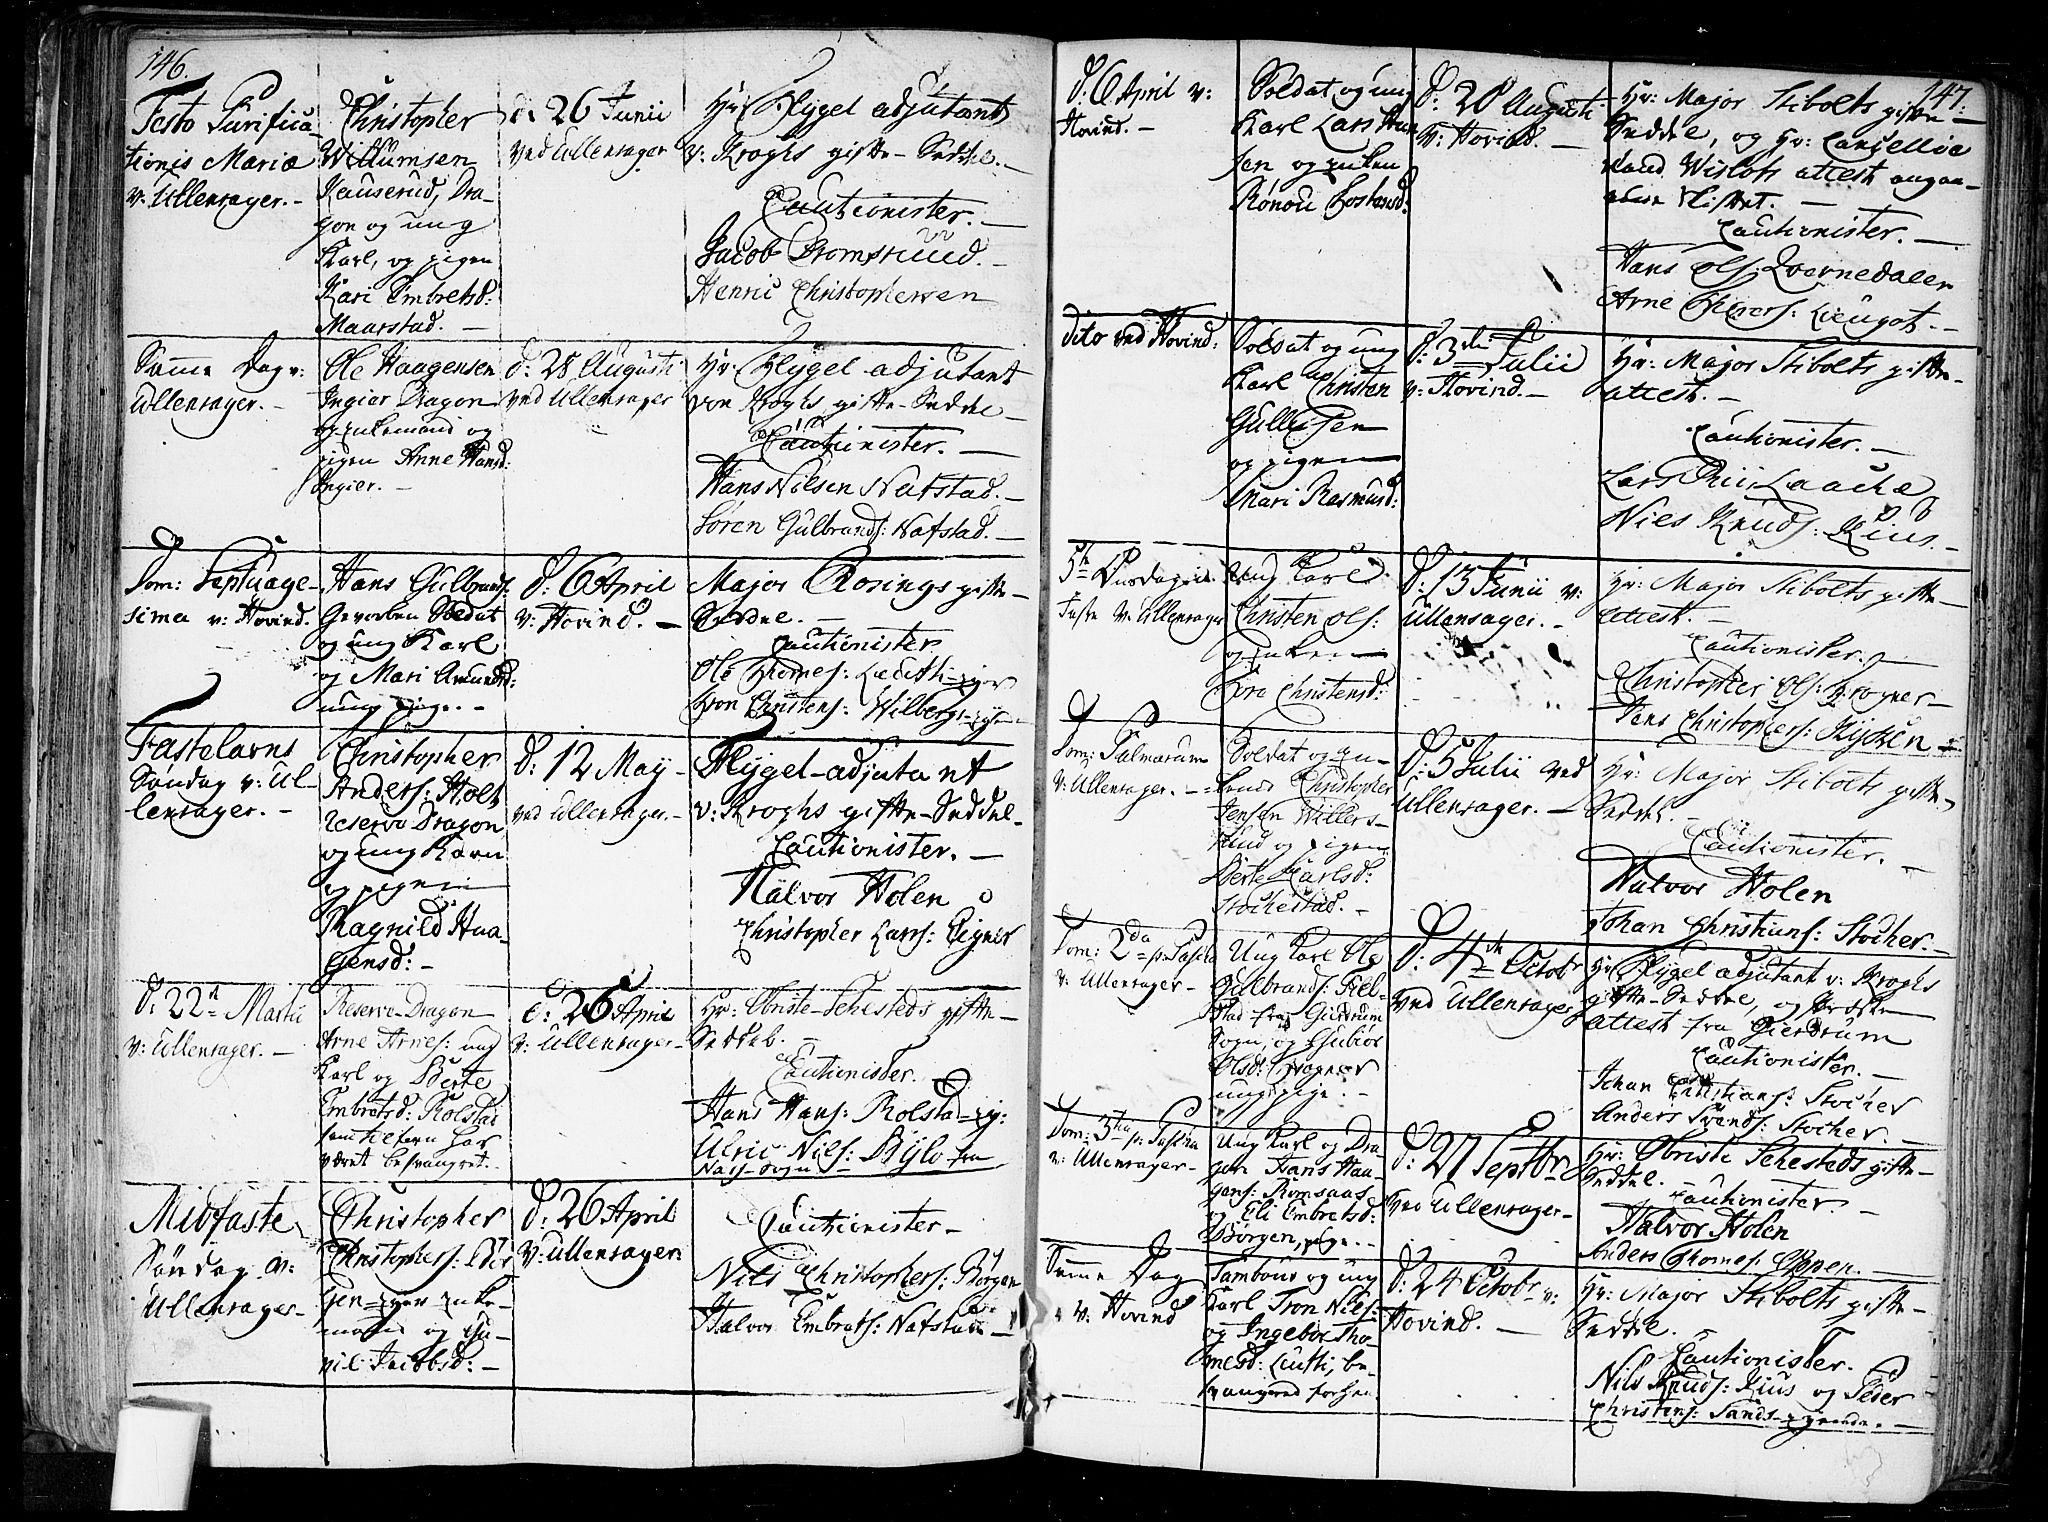 146.
Festo Purifica-
tionis Mariæ
v: Ullensager. -
Christopher
Willumsen
Kauserud, Dra-
gon og ung
Karl, og pigen
Kari Embretsd:
Maarstad. -
d: 26 Junii
ved Ullensager
Hr: Flygel adjutant
v: Kroghs gifte-Seddel. -
Cautionister. -
Jacob Romsrund. -
Henric Christophersen
Samme Dag v:
Ullensager. -
Ole Haagensen
Ingier Dragon
og enkemand og
pigen Anne Hansd:
Ingier. -
d: 28 Augusti
ved Ullensager
Hr: Flygel adjutant
von Kroghs gifte-Seddel -
Cautionister. -
Hans Nilsen Nafstad. -
Søren Gulbrands: Nafstad. -
Dom: Septuage-
sima v: Hovind.
Hans Gulbrands:
Gevorben Soldat
og ung Karl
og Mari Amundsd:
ung pige. -
d: 6 April
v: Hovind. -
Major Rosings gifte-
Seddel. -
Cautionister
Ole Thomes: Leutti-eger
Tron Christens: Wilbergs-eje
Fastelavns
Søndag v: Ul-
lensager. -
Christopher
Anders: Holt
reserve Dragon
og ung Karn
og pigen
Ragnild Haa-
gensd: -
d: 12 May -
ved Ullensager. -
Flygel-adjutant
v: Kroghs gifte-Seddel -
Cautionister. -
Halvor Holen
Christopher Lars: Eigner
d: 22n Martii
v: Ullensager. -
Reserve-Dragon
Arne Arnes: ung
Karl og Berte
Embretsd: Rolstad
som tilforn har
været besvangret. -
d: 26 April
v: Ullensager -
Hr: Obriste-Sehesteds gifte-
Seddel. -
Cautionister. -
Hans Hans: Rolstad-ej:
Ulric Nils: Bylo fra
Næss-Sogn
Midfaste
Søndag v:
Ullensager -
Christopher
Christophers:
enke-
mand og
Jacobsd: -
d: 26 April
v: Ullensager:
Cautionister -
Nils Christophers: Børgen
Halvor Embrets: Nafstad -
147.
d: 6 April v:
Hovind. -
Soldat og ung
Karl Lars
sen og enken
Rønou
d: 28 Augusti
v: Hovind. -
Hr: Major Stibolts gifte -
Seddel, og Hr: Cancellie
Raad Wislofs attest angaa-
ende Skiftet. -
Cautionister. -
Hans Ols: Qvernedalen
Arne Ivers:
Dito ved Hovind:
Soldat og ung
Karl Christen
Gullissen
og pigen
Mari Rasmusd:
d: 3die Julii
v: Hovind. -
Hr: Major Stibolts gifte-
attest. -
Cautionister. -
Lars Laache
Niels Knuds: Kius. -
5te Onsdag i
Faste v: Ullensager
Ung Karl
Christen Ols:
og enken
Christensd:
d: 13 Junii v:
Ullensager. -
Hr: Major Stibolts gifte -
Attest. -
Cautionister. -
Christopher Ols: Krogner -
Jens Christophers: Kysen -
Dom: Palmarum
v: Ullensager. -
Soldat og en-
kemand Christopher
Jensen Willers-
rud og pigen
Berte Carlsd:
Stochestad. -
d: 5 Julii ved
Ullensager. -
Hr: Major Stibolts gifte-
Seddel. -
Cautionister. -
Halvor Holen
Johan Christians: Stocher. -
Dom: 2da p: Pascha
v: Ullensager -
Ung Karl Ole
Gulbrands:
stad fra Gierdrum
Sogn, og Giubiør
Olsd: Krogner
ung pige. -
d: 4de Octobr
ved Ullensager
Hr: Flygel adjutant v: Kroghs
gifte-Seddel, og
attest fra Gierdrum
Cautionister. -
Johan Christians: Stocher
Anders Svends: Stocher. -
Dom: 3tia p: Pascha
v: Ullensager -
Ung Karl og Dra-
gon Hans Haa-
gens: Romsaas
og Eli Embretsd:
Børgen, pige. -
d: 27 Septbr
ved Ullensager -
Hr: Obriste Sehesteds gifte-
Seddel. -
Cautionister. -
Halvor Holen
Anders Thomes: Oppen. -
Samme Dag
v: Hovind
Tambour og ung
Karl Tron Nils:
og Ingebor Tho-
mesd: Leutti, be-
svangred forhen.
d: 24 Octobr v:
Hovind. -
Hr: Major Stibolts gifte-
Seddel. -
Cautionister.
Nils Knuds: Kius og Peder
Christens: Sands-ejende. -